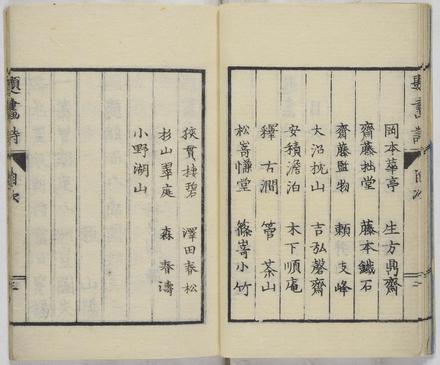 題畫詩
目次
二
岡本華亭　生方鼎齋
齋藤拙堂　藤本鐵石
齋藤監物　賴支峰
大沼枕山　吉弘磬齋
安積澹泊　木下順庵
釋古澗　菅茶山
松﨑慊堂　篠﨑小竹
挾貫捷碧　澤田泰松
杉山翠庭　森春濤
小野湖山
題畫詩
目次
三